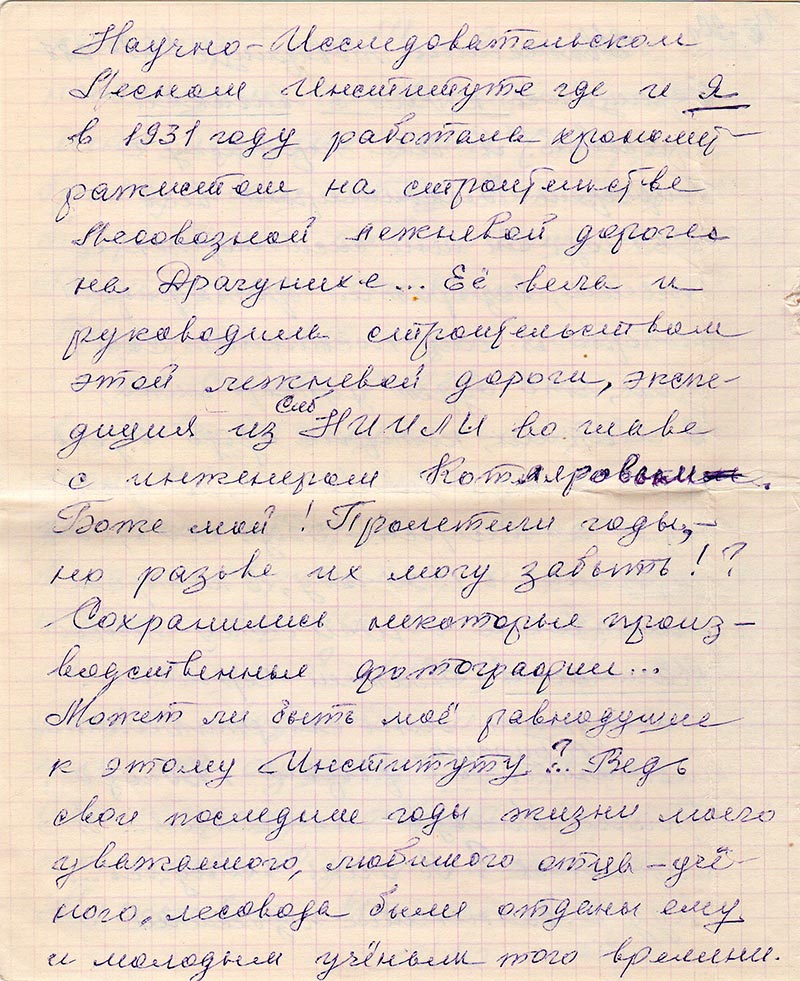 Научно-Исследовательском
Лесном Институте где и я
в 1931 году работала хрономет-
ражистом на строительстве
Лесовозной лежневой дороге
на Драгунихе... Её вела и
руководила строительством
этой лежневой дороги, экспе-
Сиб
диция из НИИЛИ во главе
с инженером Котляровым.
Боже мой! Пролетели годы, –
но разве их могу забыть!?
Сохранились некоторые произ-
водственные фотографии...
Может ли быть моё равнодушие
к этому Институту? Ведь
свои последние годы жизни моего
уважаемого, любимого отца – учё-
ного, лесовода были отданы ему
и молодым учёным того времени.